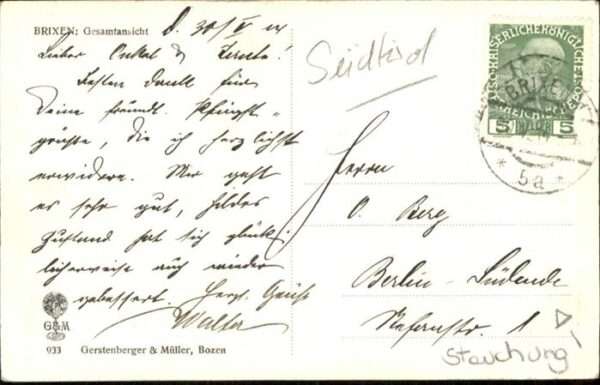 BRIXEN: Gesamtansicht
d. 30/V 14
Lieber Onkel & Tante!
Besten Dank für
Deine freundl. Pfingst-
grüsse, die ich herzlichst
erwidere. Mir geht
es sehr gut, Hildes
Zustand hat sich glück-
licherweise auch wieder
gebessert. Herzl. Grüße
Walter
G&M
933 Gerstenberger & Müller, Bozen
Südtirol
BRIXEN
5 5
* 5a *
Herrn
O. Berg
Berlin-Südende
1
Stauchung